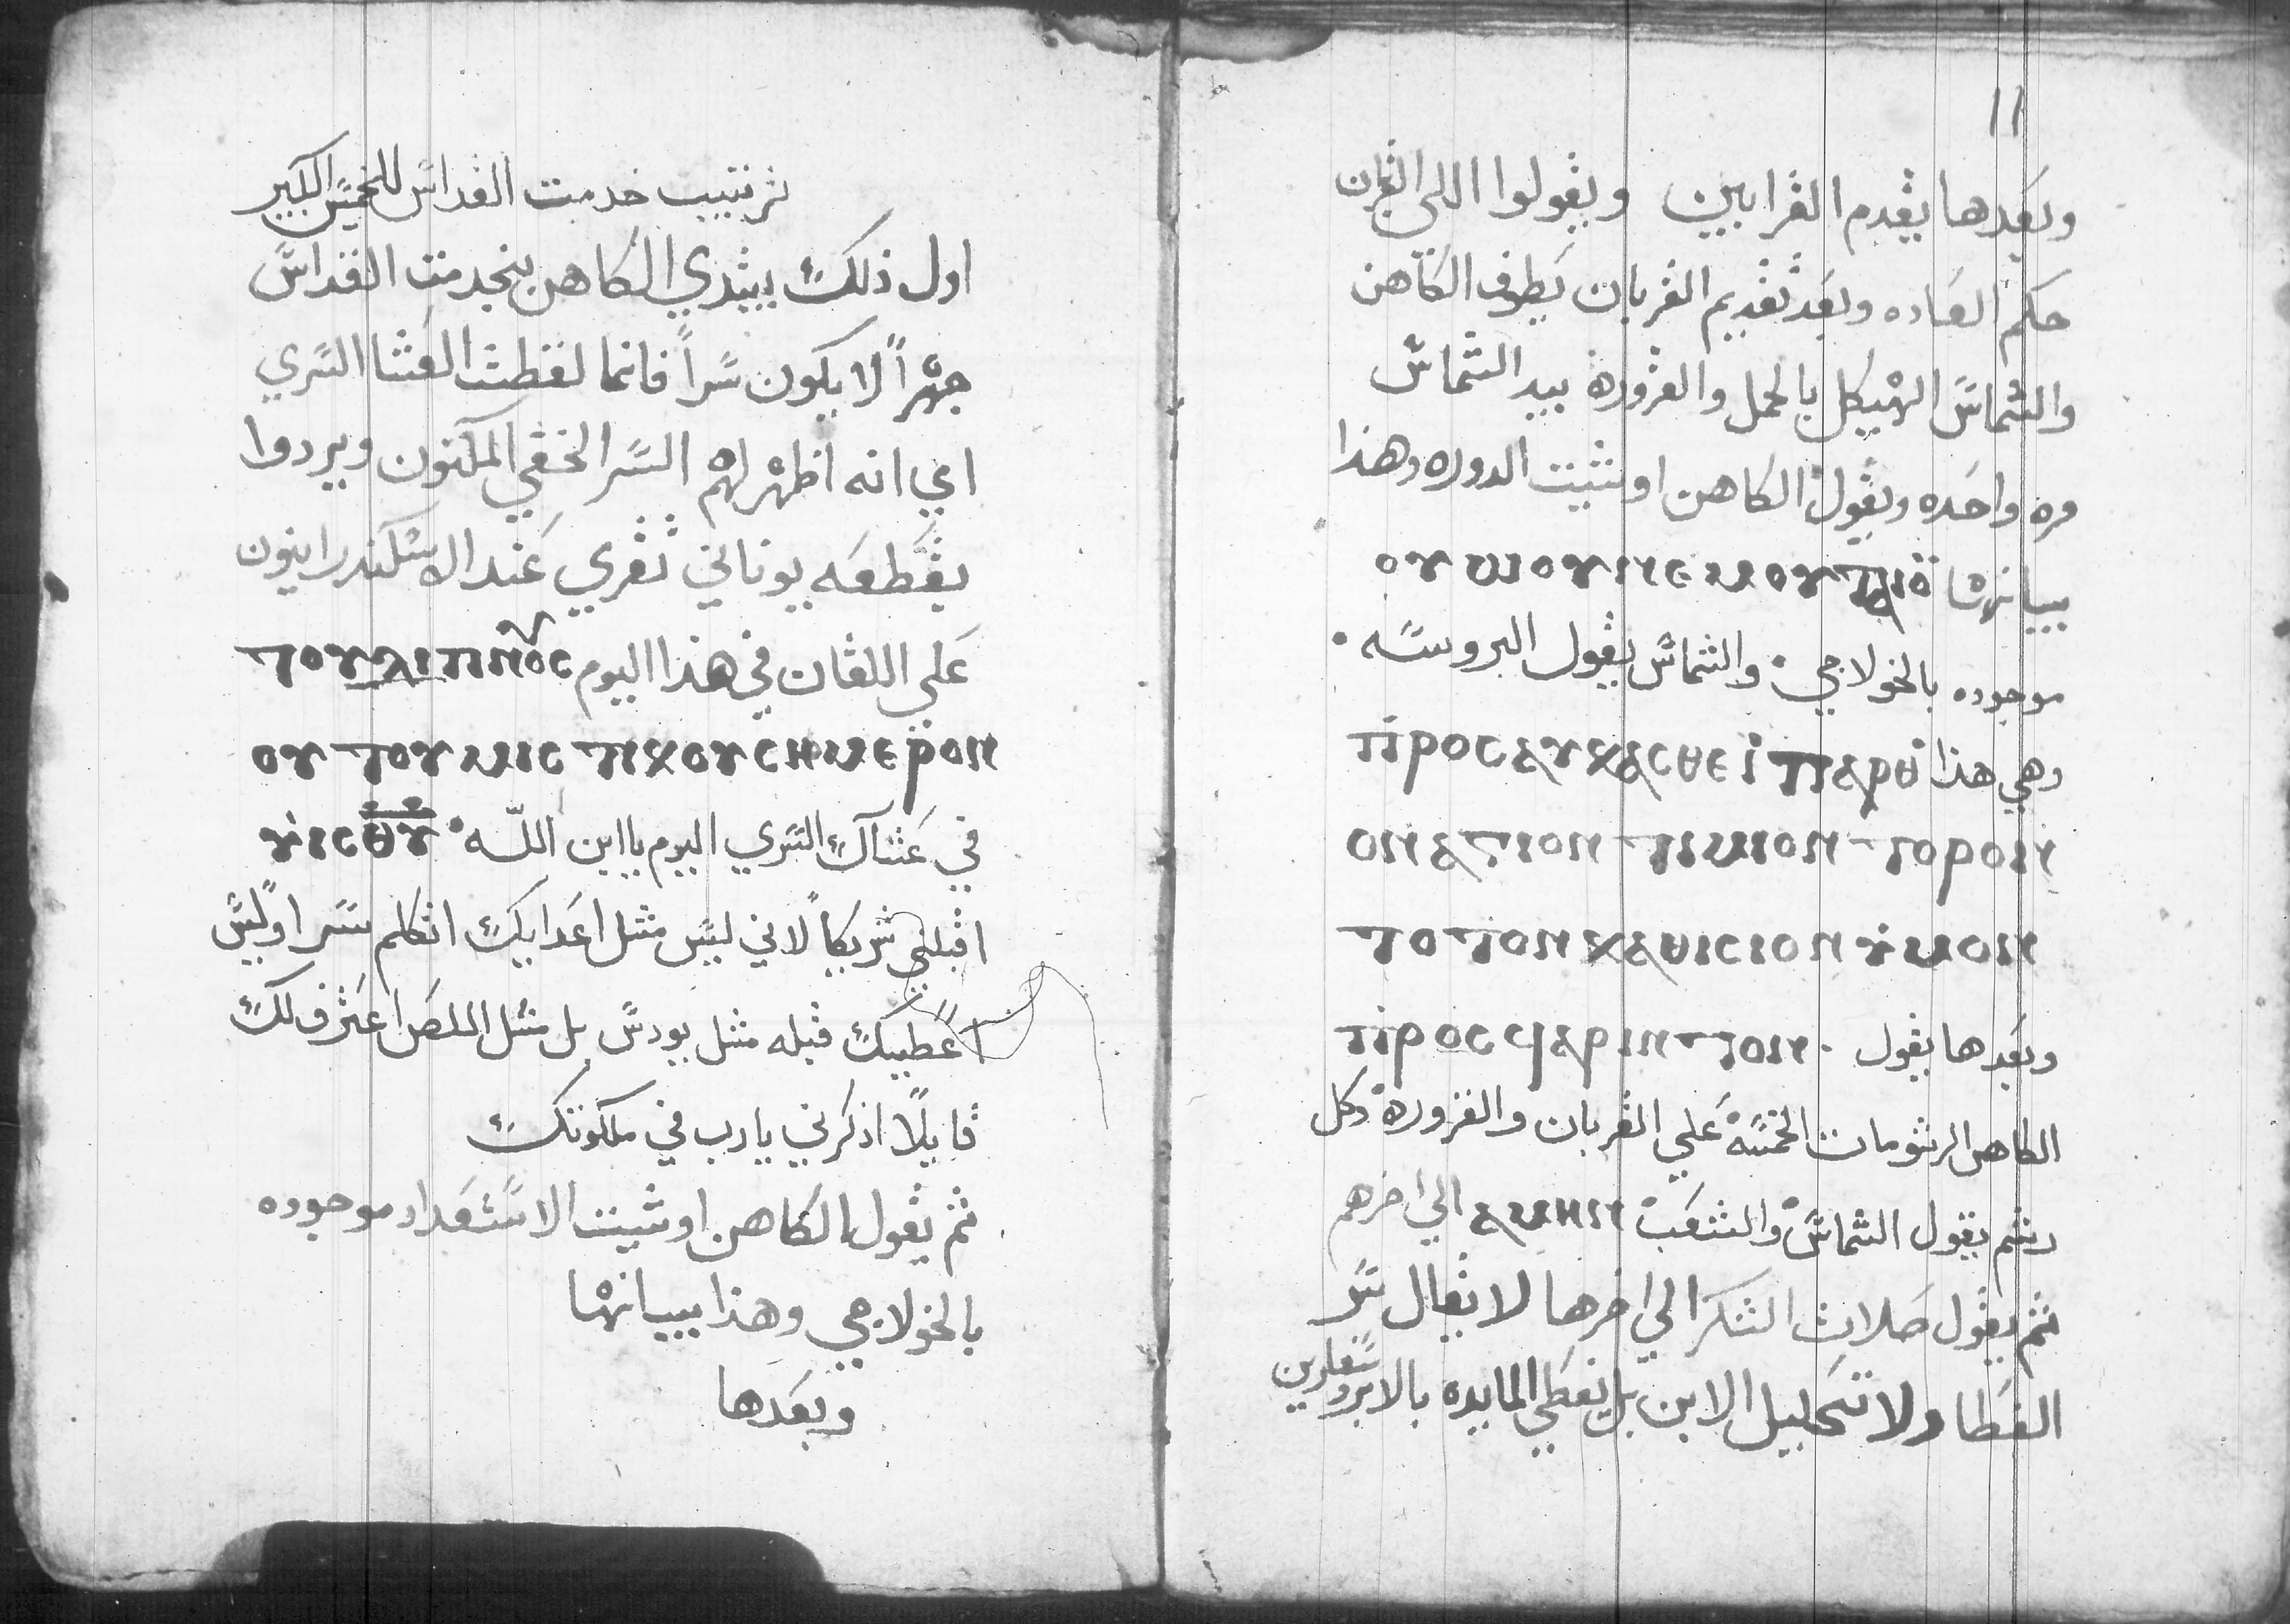 ترتيب خدمت القداس للخميس الكبير
اول ذلك يبتدي الكاهن بخدمت القداس
جهراً لا يكون سراً فانما لفظت العشا السري
اي انه اظهر لهم السر الخفي المكتون ويردوا
بقطعه يوناني تقري عند الاسكندرانيون
علي اللقان في هذا اليوم ⲧⲟⲩⲇⲓⲡⲛⲟⲥ
ⲟⲩ ⲧⲟⲩ ⲙⲓⲥ ⲧⲓⲕⲟⲩ ⲥⲏⲙⲉⲣⲟⲛ
في عشاك السري اليوم ياابن الله ⲩⲓⲥⲑⲩ
اقبلني شريكاً لاني ليس مثل اعدايك اتكلم سراً وليس
اعطيك قبله مثل يودس بل مثل اللص اعترف لك
قايلاً اذكرني يارب في ملكوتك
ثم يقول الكاهن اوشيت الاستعداد موجوده
بالخولاجي وهذا بيانها
وبعدها
١١
وبعدها يقدم القرابين ويقولوا اللي القربان
حكم العاده وبعد تقديم القربان يطوف الكاهن
والشماس الهيكل بالحمل والقزوره بيد الشماس
مره واحده ويقول الكاهن اوشيت الدوره وهذا
بيانها ⲟⲩ ⲱⲓⲟⲩⲓⲛⲉⲙⲟⲩ
موجوده بالخولاجي والشماس يقول البروسه
وهي هذا ⲡⲣⲟⲥⲉⲩⲝⲁⲥⲑⲉ ⲓⲡⲁⲣⲑ
ⲟⲛⲁⲅⲓⲟⲛ ⲧⲓⲙⲓⲟⲛ ⲧⲟⲣⲟⲛ
ⲧⲟⲧⲟⲛ ⲕⲁⲑⲓⲥⲓⲟⲛ ⲩⲙⲟⲛ
وبعدها يقول ⲡⲣⲟⲥϥⲁⲣⲓⲛⲧⲟⲛ
الكاهن الرشومات الخمسه علي القربان والقزوره وكل
رشم يقول الشماس والشعب ⲁⲙⲏⲛ الي اخرهم
ثم يقول صلات الشكر الي اخرها لا يقال سر
الغطا ولا تحليل الابن بل يغطي المايده بالابروسفارين